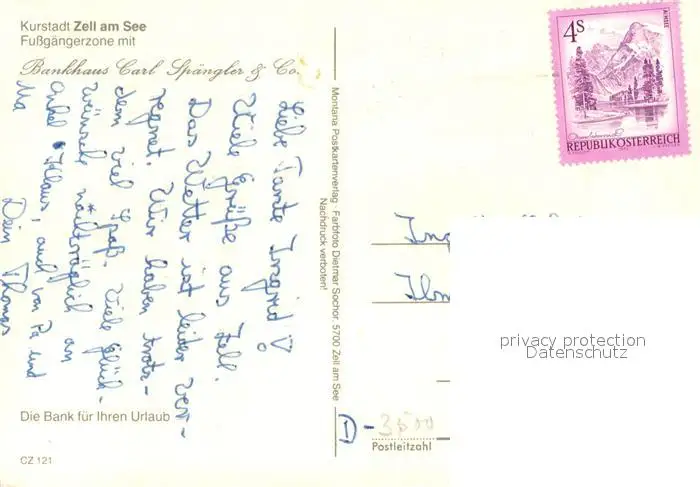 Kurstadt Zell am See
Fußgängerzone mit
Bankhaus Carl Spängler & Co.
Liebe Tante Ingrid!
Viele Grüße aus Zell.
Das Wetter ist leider ver-
regnet. Wir haben trotz-
dem viel Spaß. Viele Glück-
wünsche nachträglich an
Onkel Klaus, auch von Pa und
Ma
Dein Thomas
Die Bank für Ihren Urlaub
CZ 121
Montania Postkartenverlag · Farbfoto Dietmar Sochor, 5700 Zell am See
Nachdruck verboten!
4S
ALMSEE
REPUBLIK ÖSTERREICH
Ing
D - 3500
Postleitzahl
privacy protection
Datenschutz